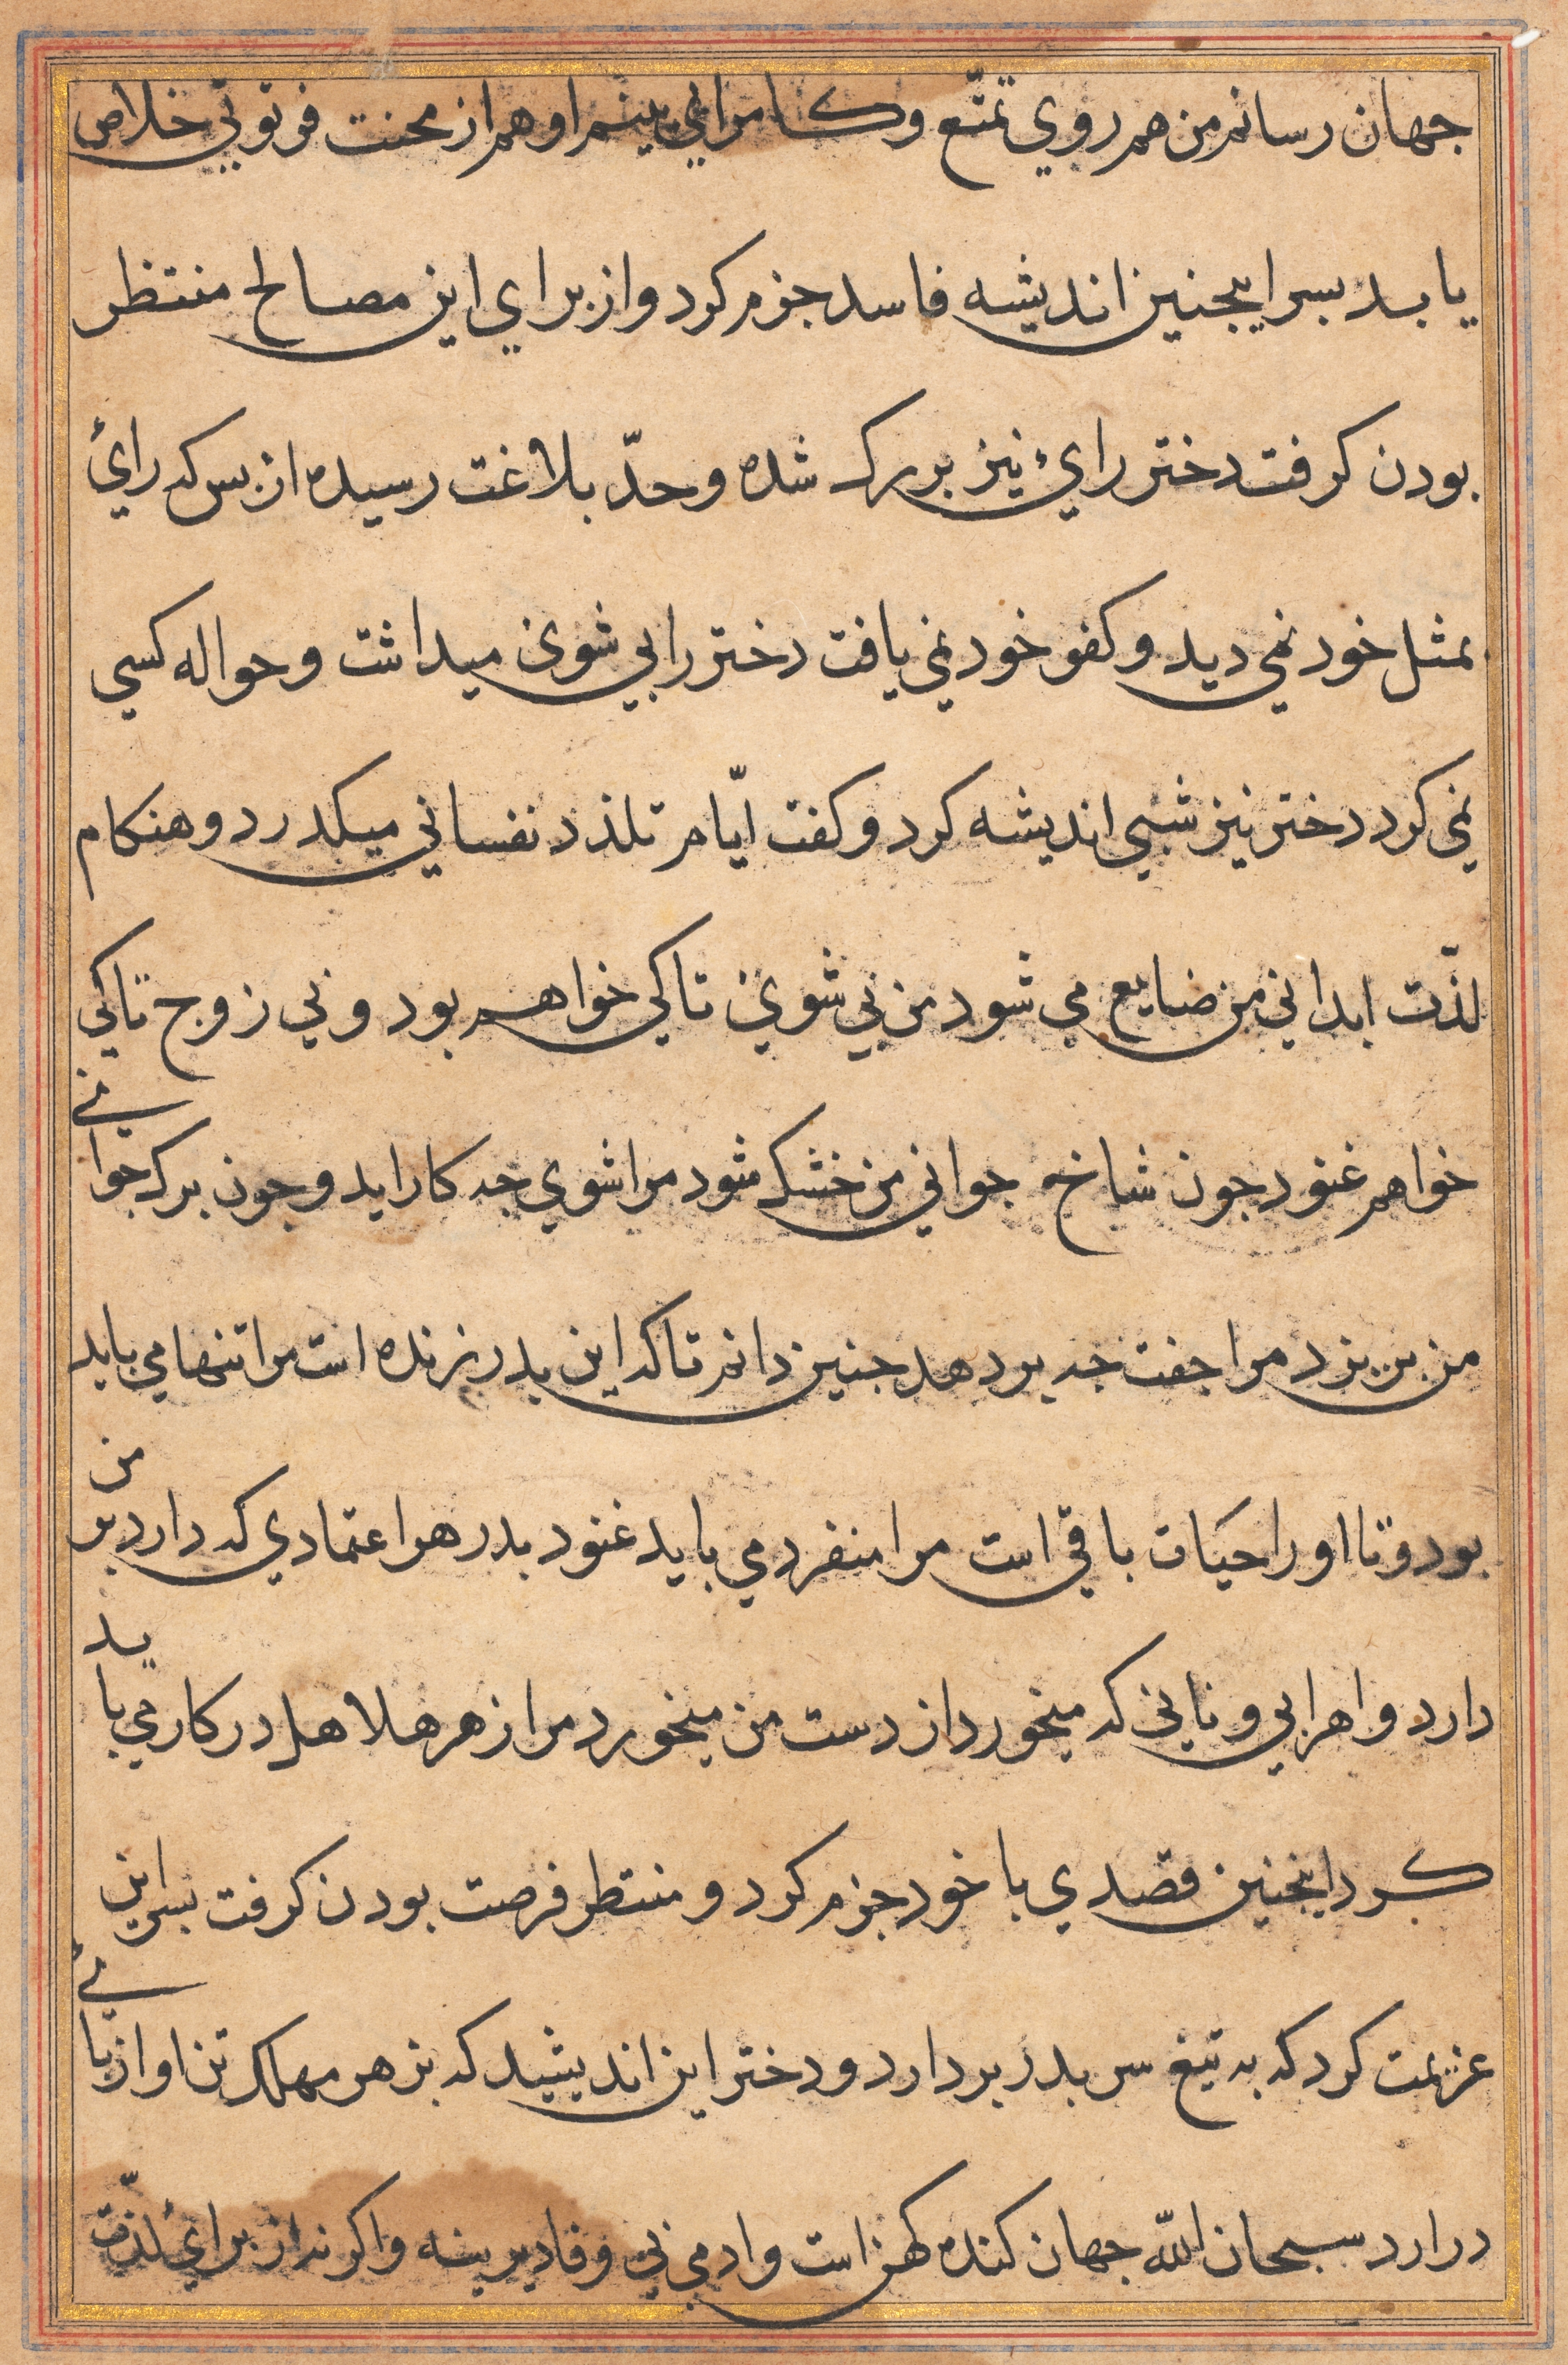 جهان رسانم من هم روي تمتّع وكامراني بينم او هم از محنت فرتوتي خلاص
يابد بسر اينجنين انديشه فاسد جزم كرد و از براي اين مصالح منتظر
بودن كرفت دختر رائ نيز بزرك شده و حدّ بلاغت رسيده از بس كه رائ
بمثل خود نمي ديد و كفو خود نمي يافت دختر را بي شوي ميداشت و حواله كسي
نمي كرد دختر نيز شبي انديشه كرد و كفت ايّام تلذذ نفساني ميكذرد و هنكام
لذّت ابداني من ضايع مي شود من بي شوي تا كي خواهم بود و بي زوج تا كي
خواهم غنود جون شاخ جواني من خشك شود مرا شوي جه كار ايد و جون برك جواني
من بريزد مرا جفت جه بر دهد جنين دانم تا كه اين بدر زنده است مرا تنها مي بايد
بود و تا او را حيات باقي است مرا منفرد مي بايد غنود بدر هر اعتمادي كه دارد بر من
دارد و هر ابي و ناني كه ميخورد از دست من ميخورد مرا زهر هلاهل در كار مي بايد
كرد اينجنين قصدي با خود جزم كرد و منتظر فرصت بودن كرفت بسر اين
عزيمت كرد كه به تيغ سر بدر بردارد و دختر اين انديشيد كه بزهر مهلك تن او از بائ
درارد سبحان الله جهان كنده كهن است و ادمي بي وفا ديرينه و اكر نه از برائ لذّت